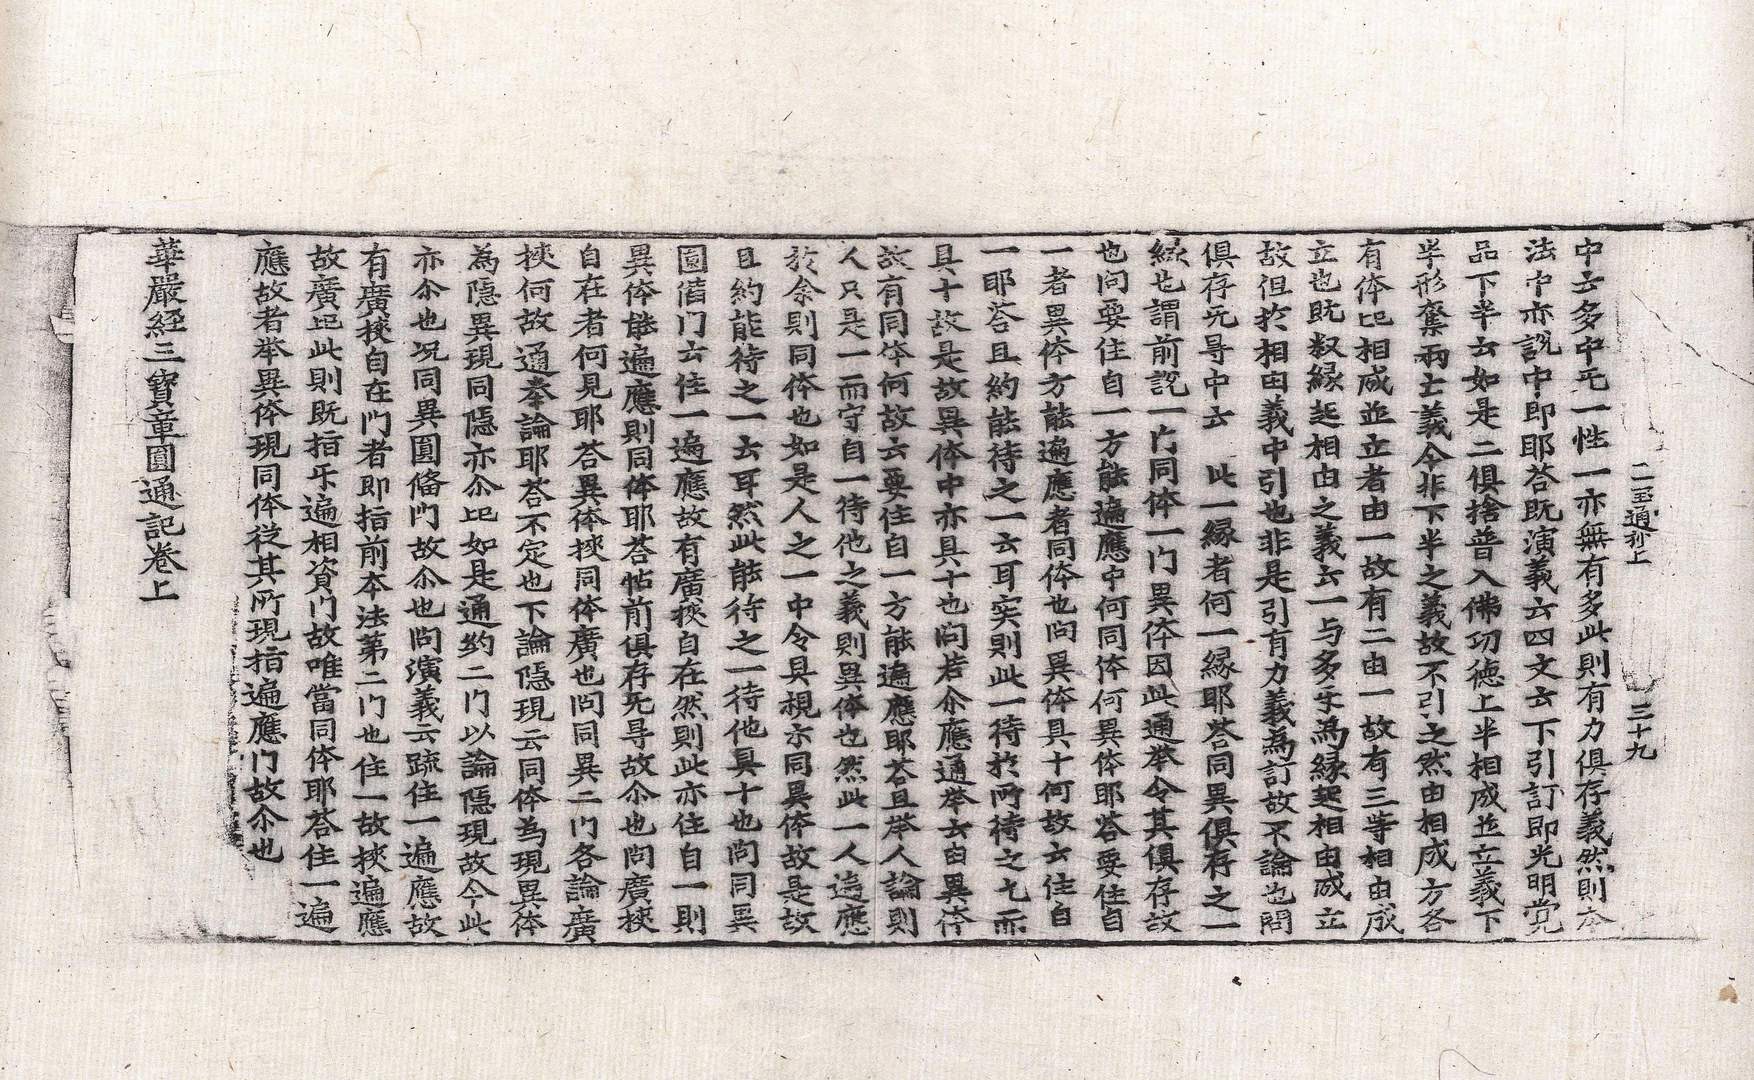 二宝通抄上　三十九
中云多中无一性一亦無有多此則有力俱存義然則本
法中亦說中即耶荅旣演義云四文云下引訂即光明覺
品下半云如是二俱捨普入佛功德上半相成並立義下
半形奪兩亡義今非下半之義故不引之然由相成方各
有体比相成並立者由一故有二由一故有三等相由成
立也旣叙縁起相由之義云一与多㸦為縁起相由成立
故但於相由義中引也非是引有力義為訂故不論也問
俱存无㝵中云　此一縁者何一縁耶荅同異俱存之一
縁也謂前說一门同体一门異体因此通举令其俱存故
也问要住自一方能遍應中何同体何異体耶荅要住自
一者異体方能遍應者同体也问異体具十何故云住自
一耶荅且約能待之一云耳实則此一待於所待之九而
具十故是故異体中亦具十也问若尒應通举云由異体
故有同体何故云要住自一方能遍應耶荅且举人論則
人只是一而守自一待他之義則異体也然此一人遠應
於余則同体也如是人之一中令具視亦同異体故是故
且約能待之一云耳然此能待之一待他具十也问同異
圓俻门云住一遍應故有廣狹自在然則此亦住自一則
異体能遍應則同体耶荅帖前俱存无㝵故尒也问廣狹
自在者何見耶荅異体狹同体廣也问同異二门各論廣
狹何故通举論耶荅不定也下論隠現云同体為現異体
為隠異現同隠亦尒比如是通約二门以論隠現故今此
亦尒也况同異圓俻门故尒也问演義云疏住一遍應故
有廣狹自在门者即指前本法第二门也住一故狹遍應
故廣比此則旣指㸦遍相資门故唯當同体耶荅住一遍
應故者举異体現同体從其所現指遍應门故尒也
華嚴經三寶章圓通記卷上